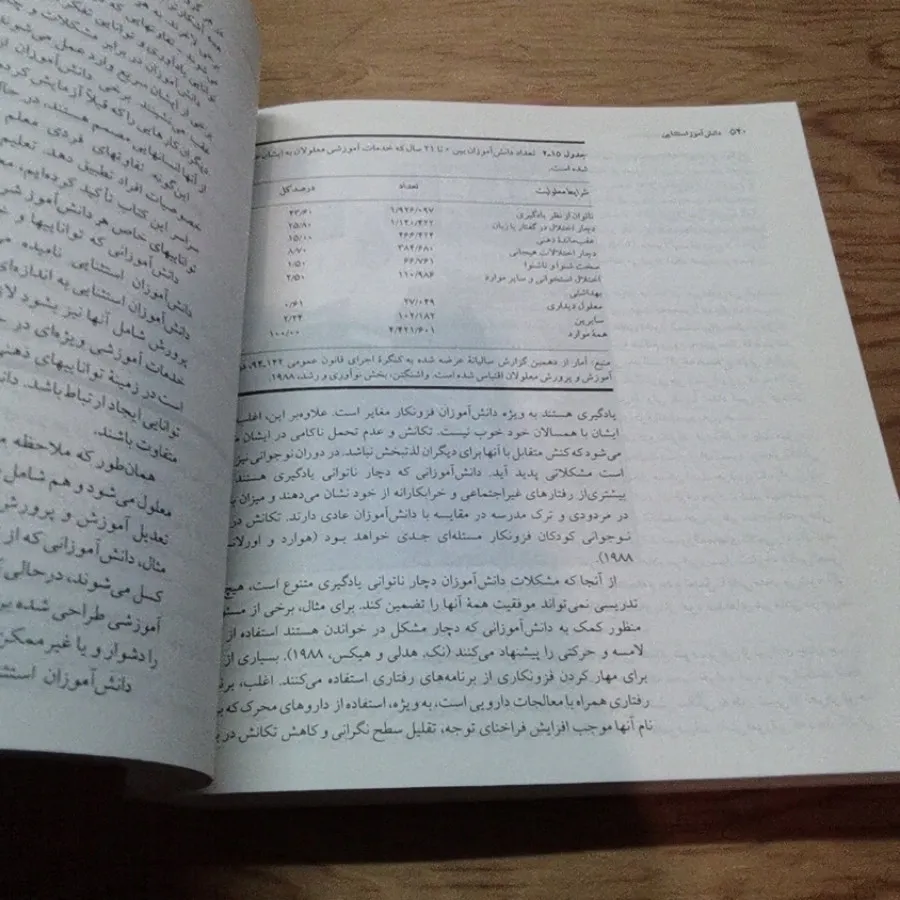 ۵۴۰ دانش‌آموز استثنایی
جدول ۲.۱۵ تعداد دانش‌آموزان بین ۰ تا ۲۱ سال که خدمات آموزشی معلولان به ایشان
شده است.
شرایط معلولیت تعداد درصد کل
ناتوان از نظر یادگیری ۱/۹۲۶/۰۹۷ ۴۳/۶۰
دچار اختلال در گفتار یا زبان ۲۵/۸۰
عقب‌ماندهٔ ذهنی ۱۵/۰۰
دچار اختلالات هیجانی ۳۸۴/۶۸۰ ۸/۷۰
سخت شنوا و ناشنوا ۶۶/۷۶۱ ۱/۵۰
اختلال استخوانی و سایر موارد ۱۱۰/۹۸۶ ۲/۵۰
بهداشتی
معلول دیداری ۲۷/۰۴۹ ۰/۶۱
سایرین ۱۰۲/۱۸۲
همهٔ موارد ۴/۴۲۱/۶۰۱ ۱۰۰/۰۰
منبع: آمار از دهمین گزارش سالیانهٔ عرضه شده به کنگرهٔ اجرای قانون عمومی
آموزش و پرورش معلولان اقتباس شده است. واشنگتن، بخش نوآوری و رشد، ۱۹۸۸.
یادگیری هستند به ویژه دانش‌آموزان فزونکار مغایر است. علاوه‌بر این، اغلب
ایشان با همسالان خود خوب نیست. تکانش و عدم تحمل ناکامی در ایشان
می‌شود که کنش متقابل با آنها برای دیگران لذتبخش نباشد. در دوران نوجوانی نیز
است مشکلاتی پدید آید. دانش‌آموزانی که دچار ناتوانی یادگیری هستند
بیشتری از رفتارهای غیراجتماعی و خرابکارانه از خود نشان می‌دهند و میزان
در مردودی و ترک مدرسه در مقایسه با دانش‌آموزان عادی دارند. تکانش در
نوجوانی کودکان فزونکار مسئله‌ای جدی خواهد بود (هوارد و
۱۹۸۸).
از آنجا که مشکلات دانش‌آموزان دچار ناتوانی یادگیری متنوع است، هیچ
تدریسی نمی‌تواند موفقیت همهٔ آنها را تضمین کند. برای مثال، برخی از
منظور کمک به دانش‌آموزانی که دچار مشکل در خواندن هستند استفاده از
لامسه و حرکتی را پیشنهاد می‌کنند (نک. هدلی و هیکس، ۱۹۸۸). بسیاری از
برای مهار کردن فزونکاری از برنامه‌های رفتاری استفاده می‌کنند. اغلب،
رفتاری همراه با معالجات دارویی است، به ویژه، استفاده از داروهای محرک که
نام آنها موجب افزایش فراخنای توجه، تقلیل سطح نگرانی و کاهش تکانش در
توانایی یادآوری و توانایی
دانش‌آموزان در برابر مشکلات و
برخی از ایشان سریع وارد عمل می‌شوند
عقب می‌نشینند. برخی دانش‌آموزان از
دیگران کارهایی را که قبلاً آزمایش کرده
از آنها انسانهایی مصمم هستند، در
این‌گونه تفاوتهای فردی معلم
خصوصیات افراد تطبیق دهد. تعلیم
سراسر این کتاب تأکید کرده‌ایم،
تواناییهای خاص هر دانش‌آموز
دانش‌آموزانی که تواناییها و
دانش‌آموزان استثنایی نامیده
دانش‌آموزان استثنایی به اندازه‌ای
پرورش شامل آنها نیز بشود
خدمات آموزشی ویژه‌ای در
است در زمینهٔ تواناییهای ذهنی
توانایی ایجاد ارتباط باشد.
متفاوت باشند.
همان‌طور که ملاحظه
معلول می‌شود و هم شامل
تعدیل آموزش و پرورش
مثال، دانش‌آموزانی که از
کسل می‌شوند، درحالی
آموزشی طراحی شده
را دشوار و یا غیرممکن
دانش‌آموزان